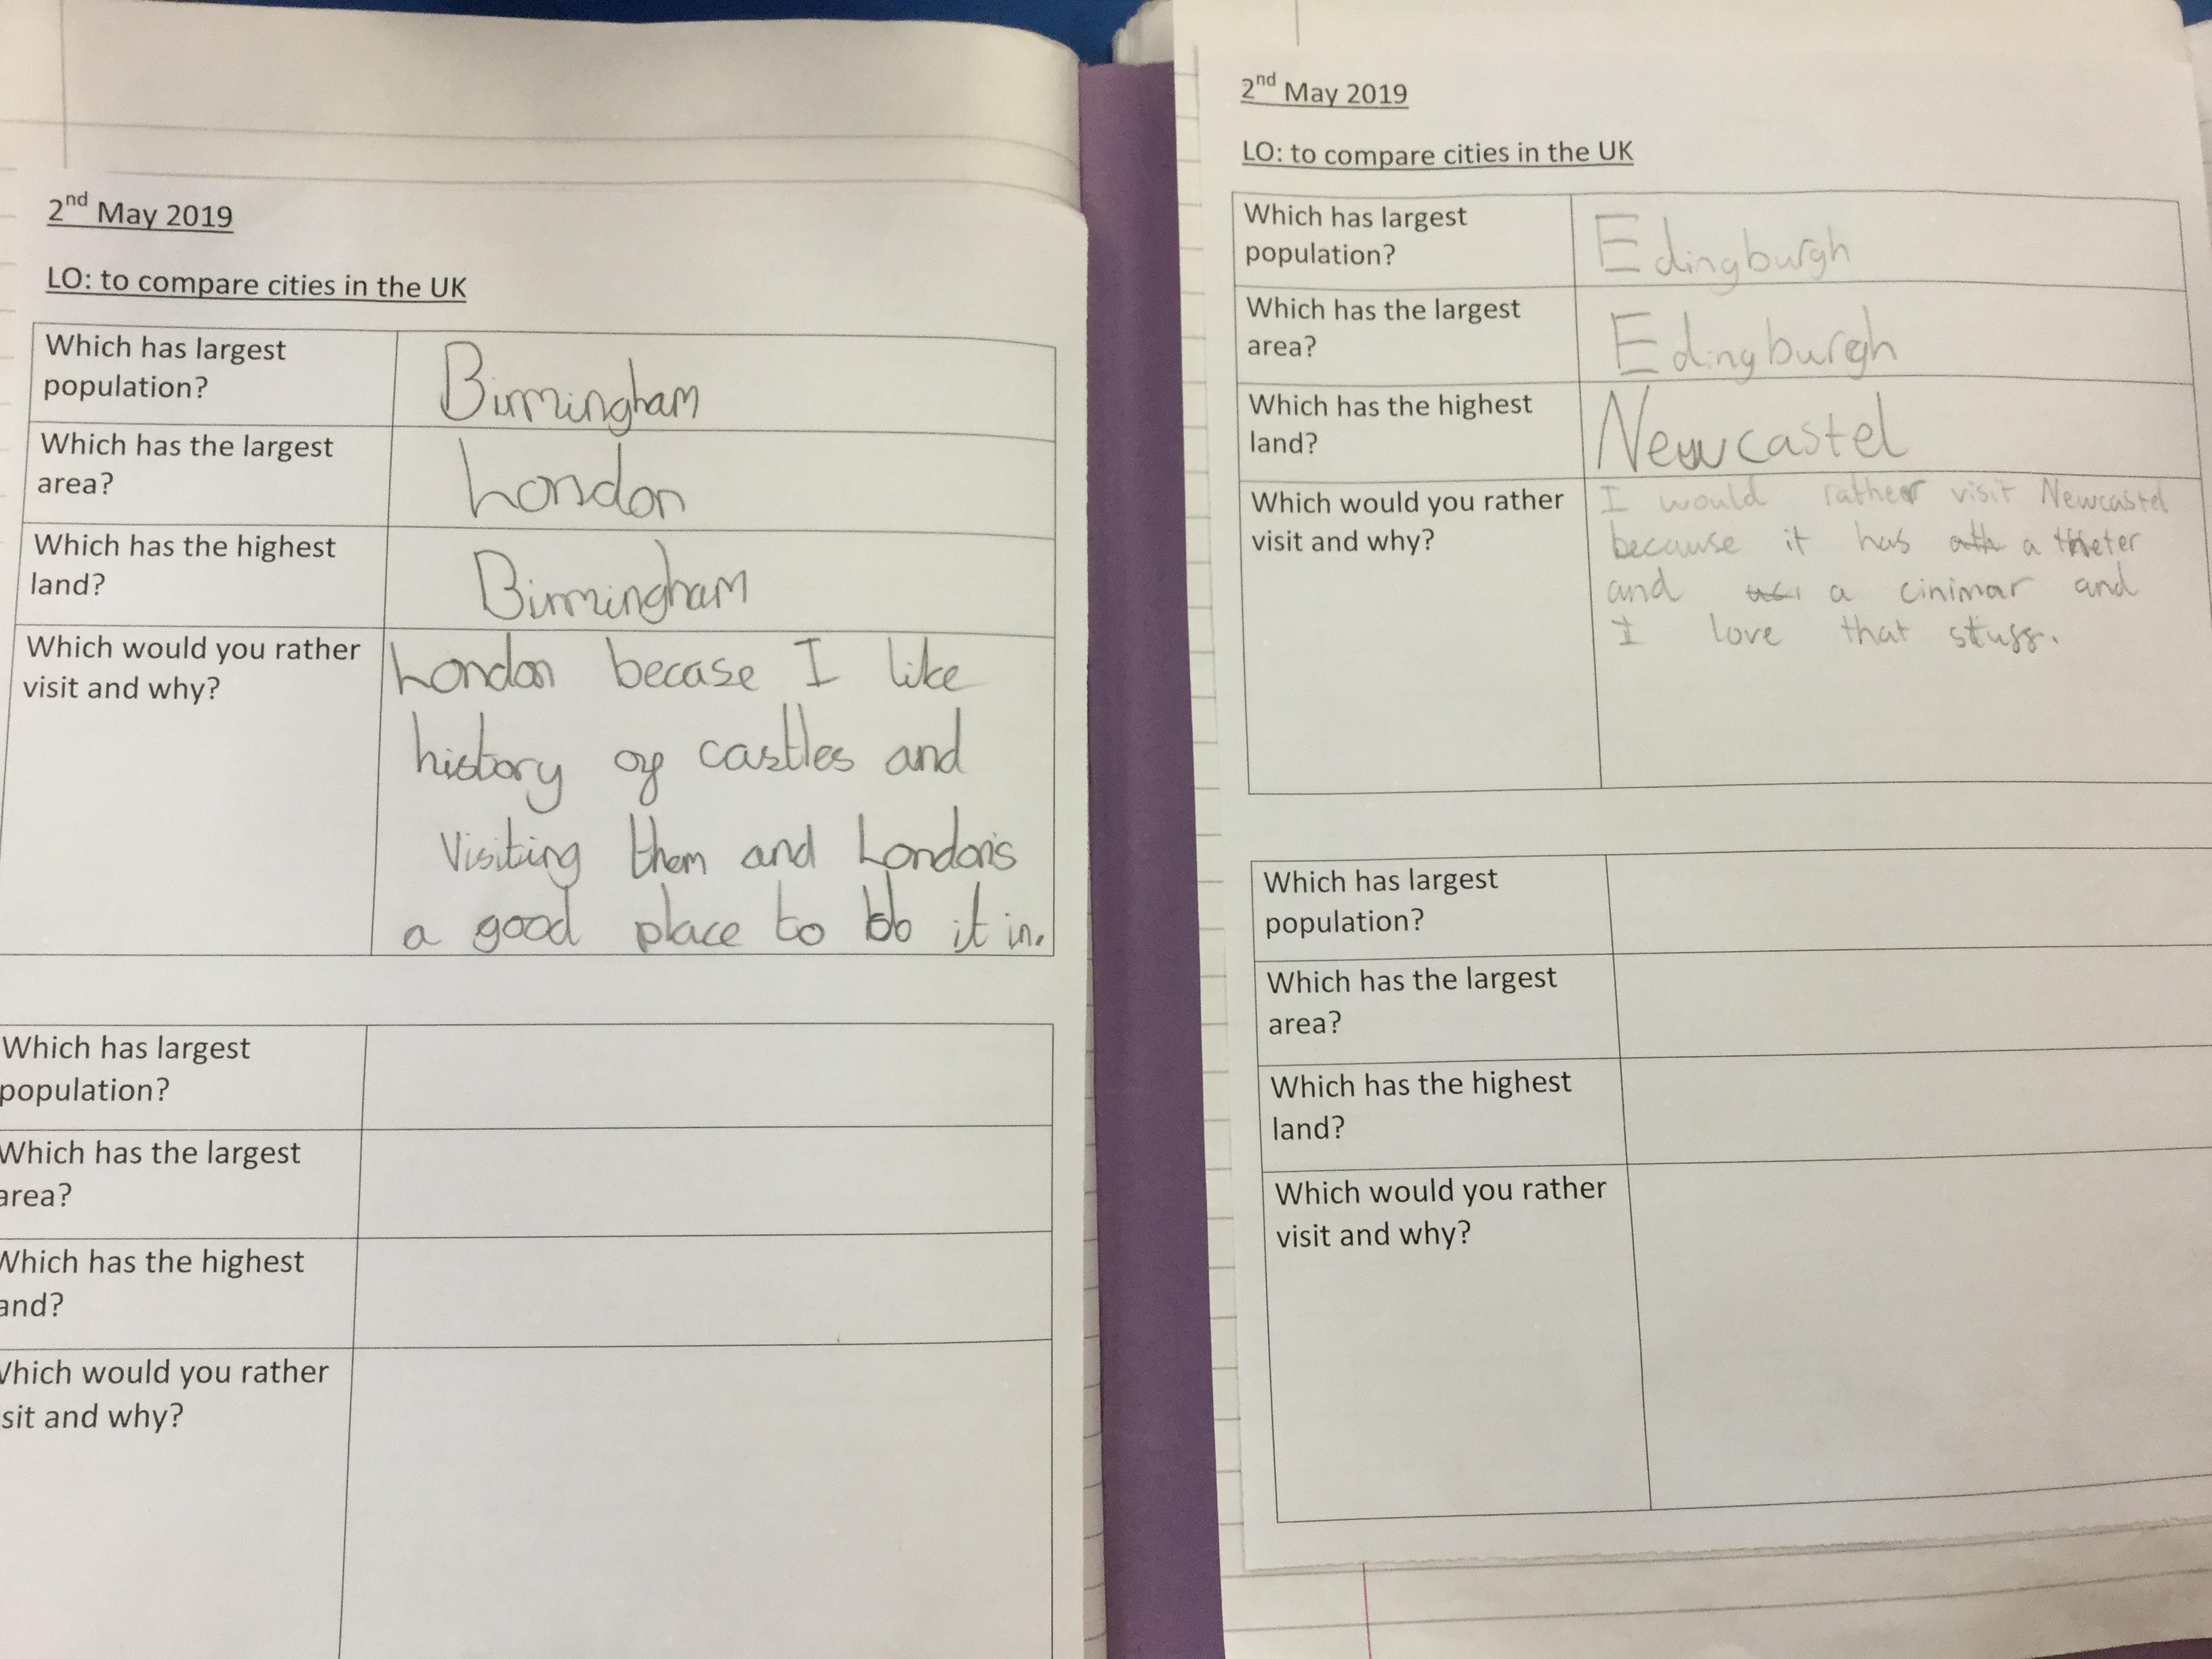 2nd May 2019
LO: to compare cities in the UK
Which has largest
population?
Birmingham
Which has the largest
area?
London
Which has the highest
land?
Birmingham
Which would you rather
visit and why?
London becase I like
history of castles and
Visiting them and London's
a good place to do it in.
Which has largest
population?
Which has the largest
area?
Which has the highest
and?
Which would you rather
sit and why?
2nd May 2019
LO: to compare cities in the UK
Which has largest
population?
Edingburgh
Which has the largest
area?
Edingburgh
Which has the highest
land?
Newcastel
Which would you rather
visit and why?
I would rather visit Newcastel
because it has a theter
and a cinimar and
I love that stuff.
Which has largest
population?
Which has the largest
area?
Which has the highest
land?
Which would you rather
visit and why?